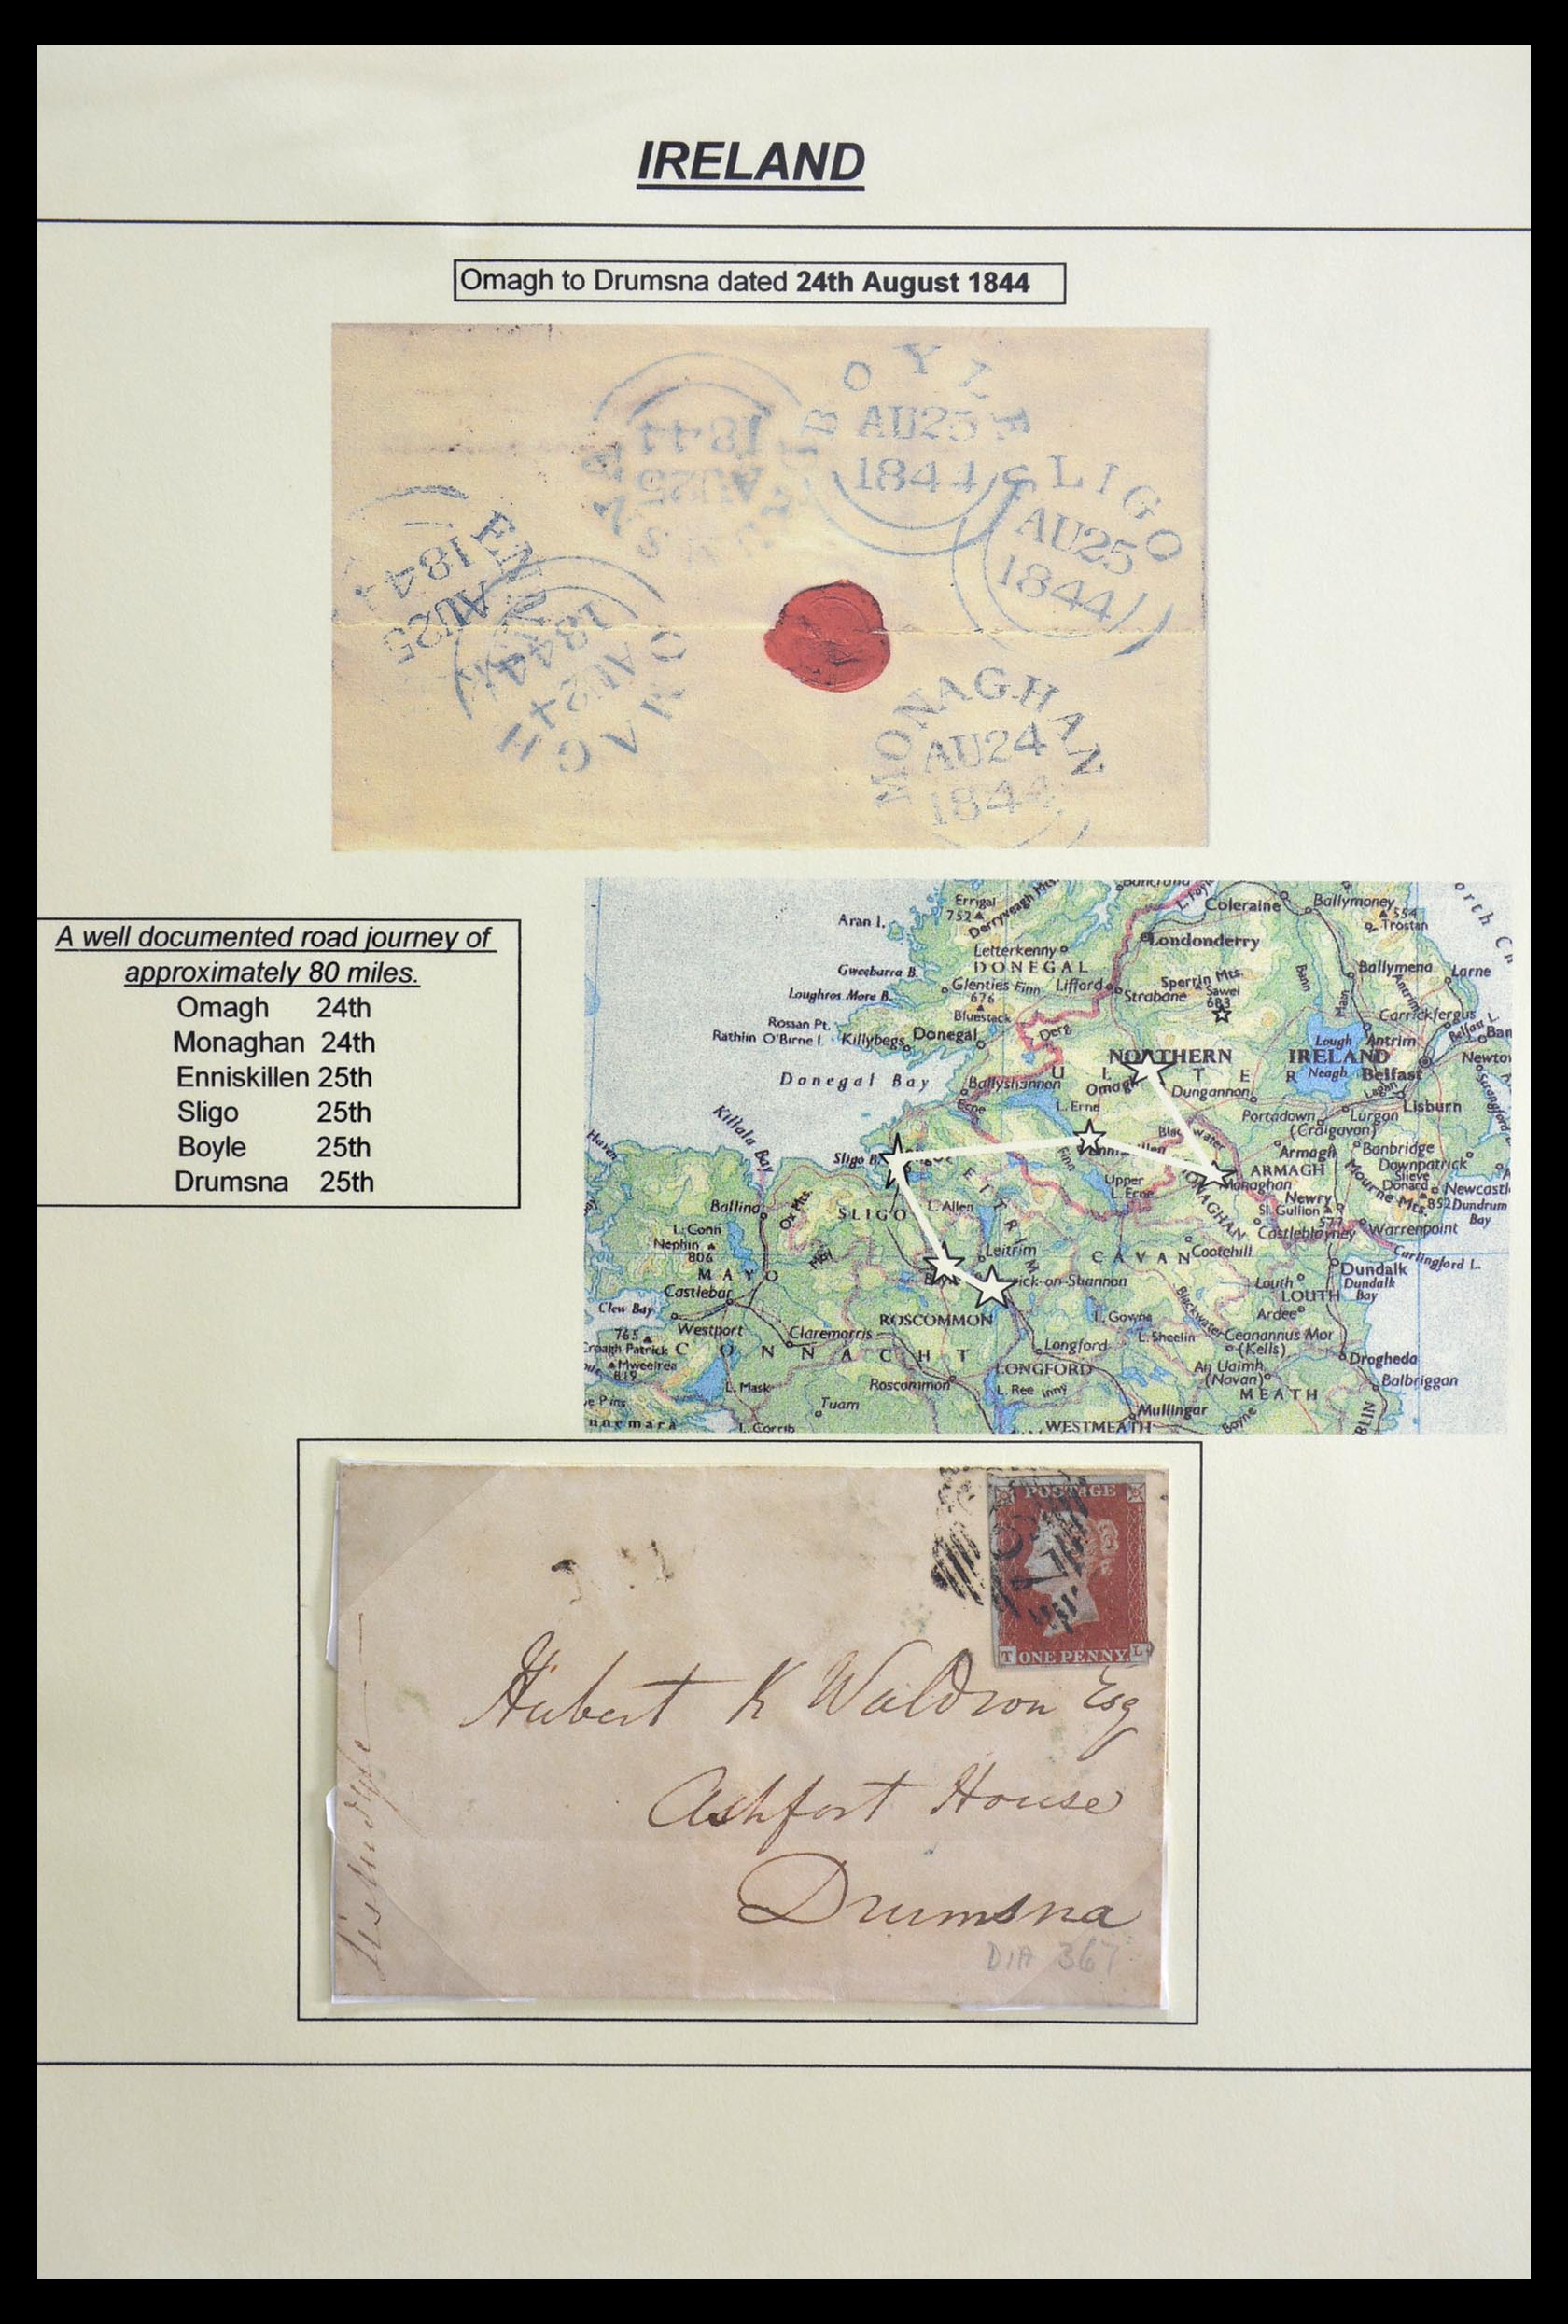 IRELAND
Omagh to Drumsna dated 24th August 1844
BOYLE
AU25
1844
1844
AU25
SLIGO
AU25
1844
1844
AU25
1844
AU24
OMAGH
MONAGHAN
AU24
1844
A well documented road journey of
approximately 80 miles.
Omagh 24th
Monaghan 24th
Enniskillen 25th
Sligo 25th
Boyle 25th
Drumsna 25th
Errigal
752
Derryveagh Mts.
Coleraine
Ballymoney
554
Trostan
Aran I.
Letterkenny
Londonderry
DONEGAL
Gweebarra B.
Glenties Finn
Lifford
Strabane
Sperrin Mts.
Sawel
683
Bann
Main
Ballymena
Larne
Antrim
Loughros More B.
676
Bluestack
Carrickfergus
Belfast L.
Rossan Pt.
Rathlin O'Birne I.
Killybegs
Donegal
Derg
Lough
Neagh
Antrim
NORTHERN IRELAND
Belfast
Donegal Bay
Ballyshannon
Erne
L. Erne
Omagh
Dungannon
Lagan
Lisburn
Portadown
Lurgan
(Craigavon)
Killala Bay
Sligo B.
Finn
Blackwater
Armagh
Banbridge
ARMAGH
Downpatrick
Slieve
Donard
852
Dundrum
Bay
Mourne Mts.
Upper
L. Erne
Monaghan
MONAGHAN
Newry
Sl. Gullion
577
Ballina
Ox Mts.
SLIGO
L. Allen
LEITRIM
Castleblayney
Warrenpoint
L. Conn
Nephin
806
Moy
Leitrim
CAVAN
Cootehill
Carlingford L.
MAYO
Castlebar
Dundalk
Dundalk
Bay
Louth
LOUTH
Clew Bay
Westport
Claremorris
ROSCOMMON
L. Gowna
L. Sheelin
Blackwater
Ardee
765
Croagh Patrick
Mweelrea
819
CONNACHT
Longford
LONGFORD
Ceanannus Mor
(Kells)
Drogheda
An Uaimh
(Navan)
Balbriggan
L. Mask
Roscommon
L. Ree
Inny
MEATH
Tuam
Mullingar
WESTMEATH
Boyne
L. Corrib
POSTAGE
T ONE PENNY L
Hubert K Waldron Esq
Ashfort House
Drumsna
DIA 367